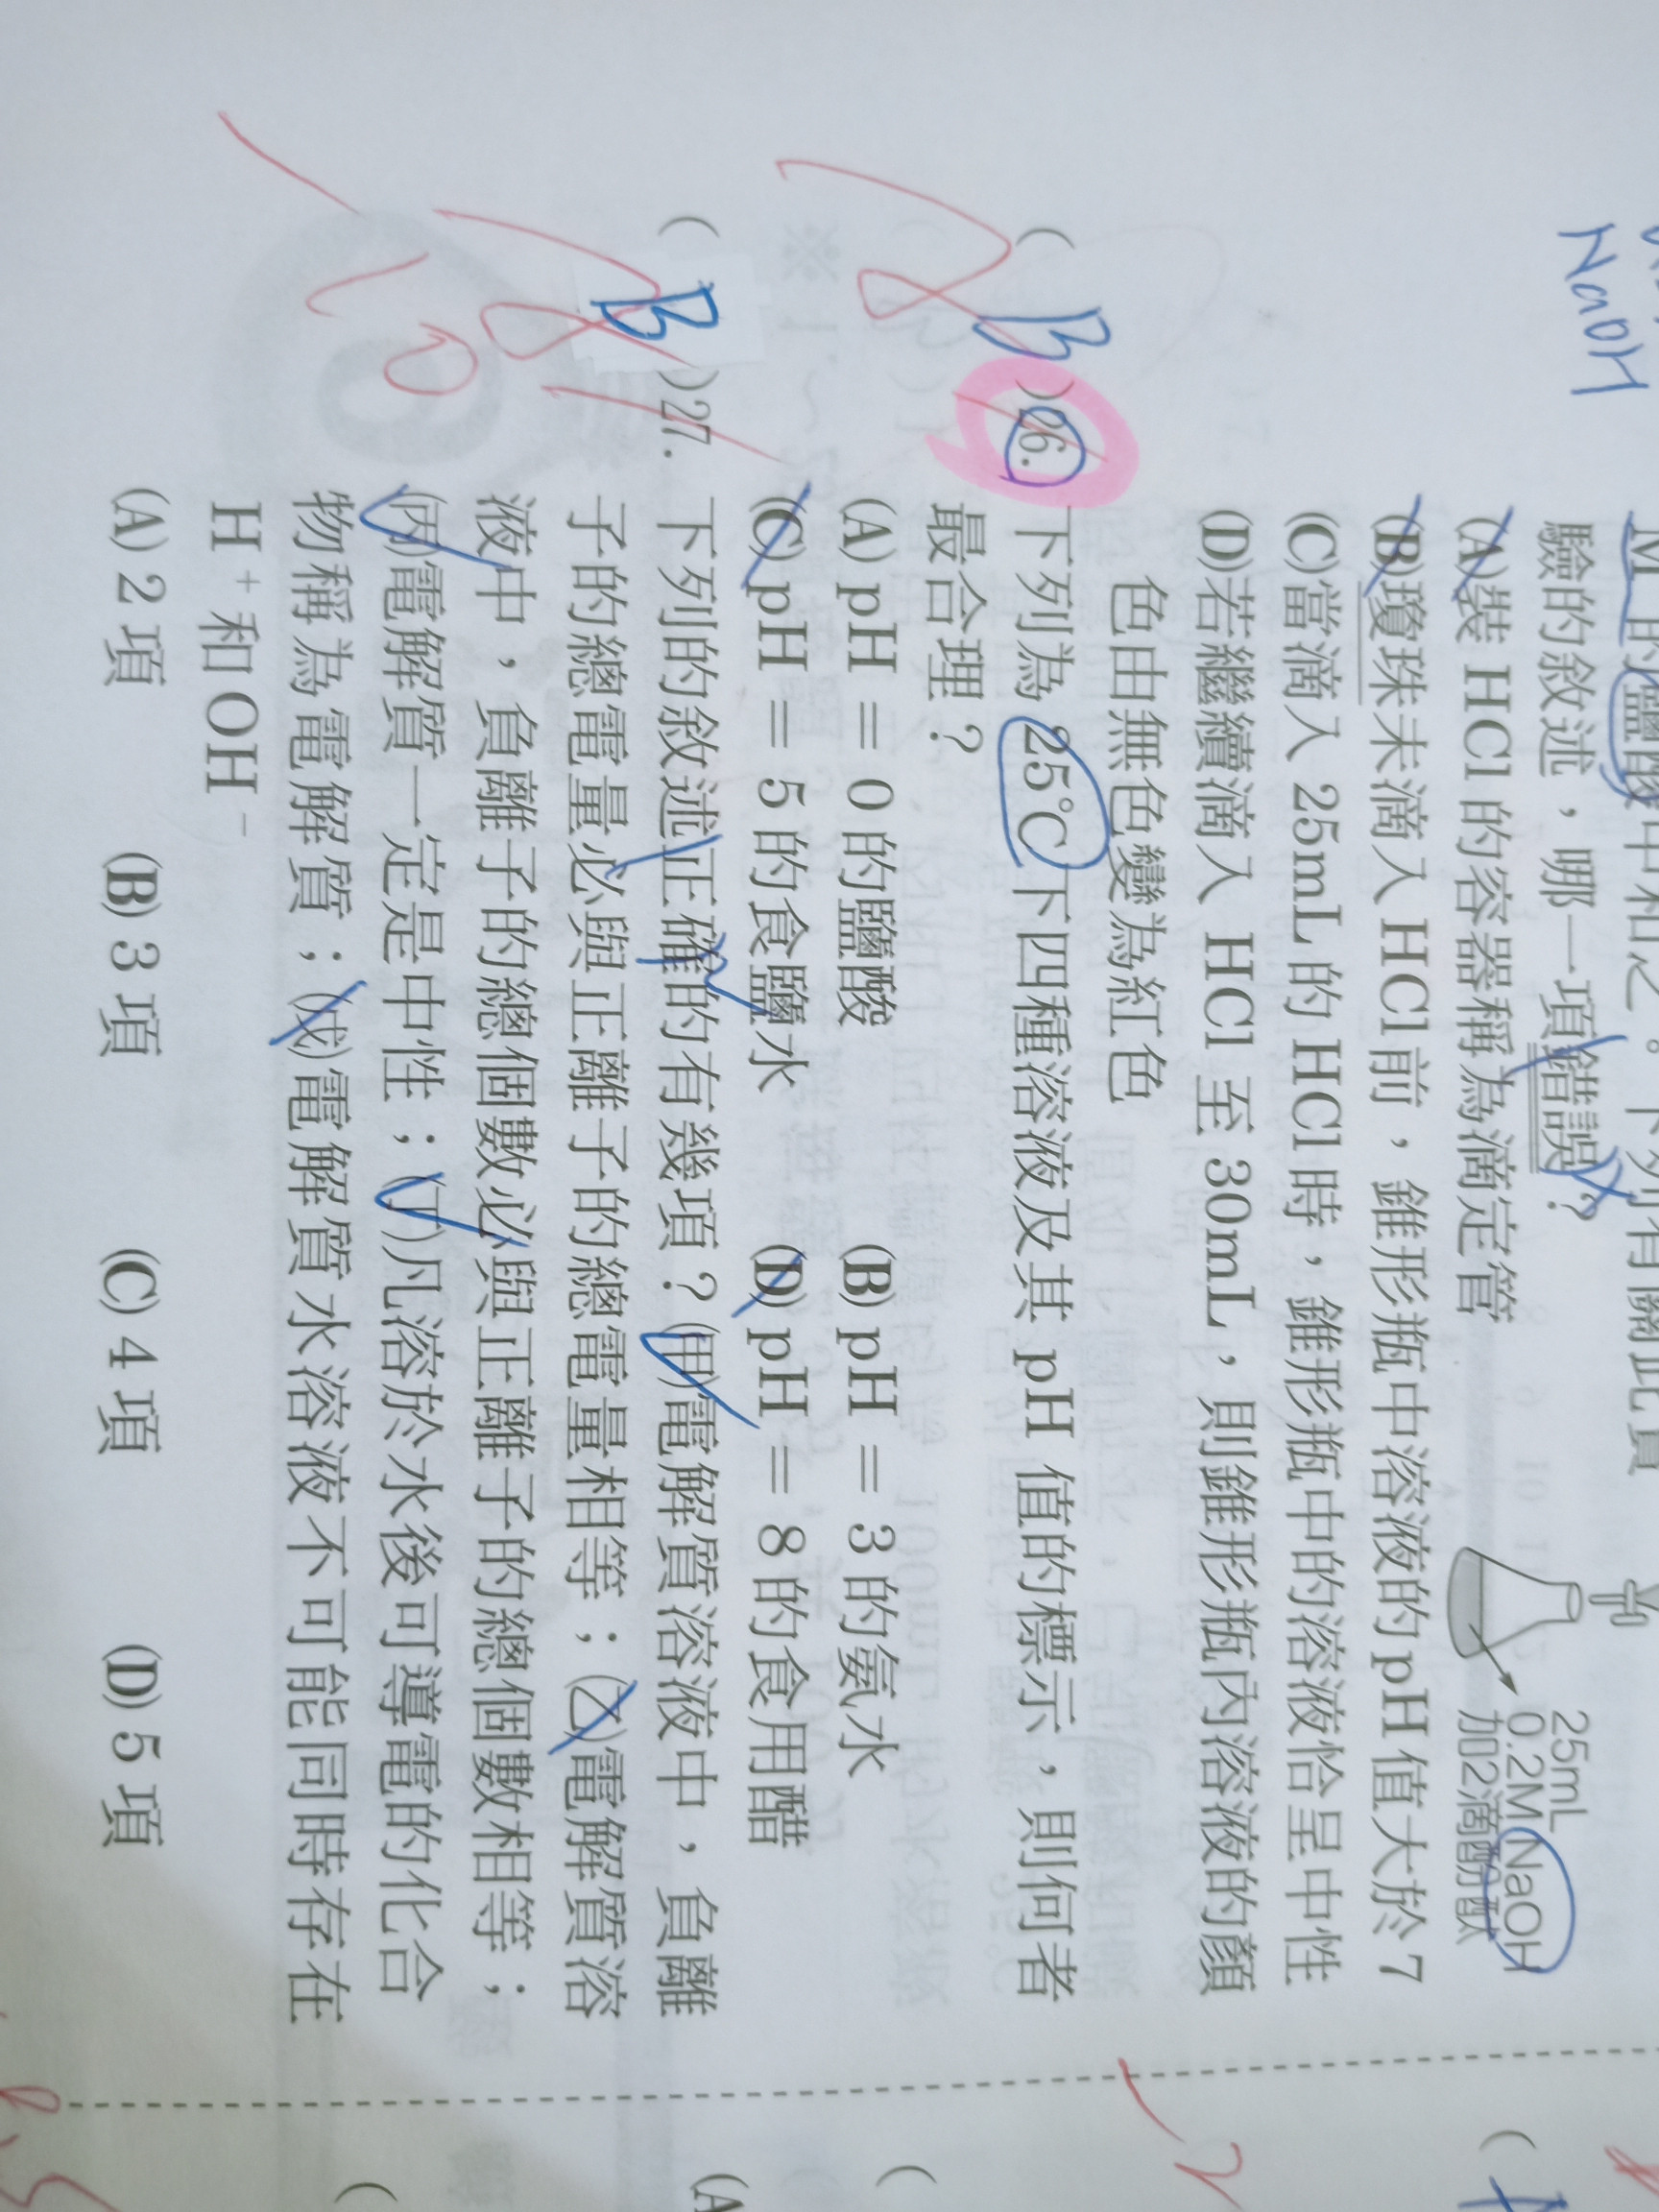 NaOH
M 的鹽酸中和之。下列有關此實
驗的敘述,哪一項錯誤?
(A)裝 HCl 的容器稱為滴定管
(B)瓊珠未滴入HCl前,錐形瓶中溶液的pH值大於7
(C)當滴入 25mL 的 HCl 時,錐形瓶中的溶液恰呈中性
(D)若繼續滴入 HCl 至 30mL,則錐形瓶內溶液的顏
色由無色變為紅色
25mL
0.2M NaOH
加2滴酚酞
( B )26. 下列為 25℃下四種溶液及其 pH 值的標示,則何者
最合理?
(A) pH = 0 的鹽酸 (B) pH = 3 的氨水
(C) pH = 5 的食鹽水 (D) pH = 8 的食用醋
( B )27. 下列的敘述正確的有幾項?(甲)電解質溶液中,負離
子的總電量必與正離子的總電量相等;(乙)電解質溶
液中,負離子的總個數必與正離子的總個數相等;
(丙)電解質一定是中性;(丁)凡溶於水後可導電的化合
物稱為電解質;(戊)電解質水溶液不可能同時存在
H⁺和OH⁻
(A) 2 項 (B) 3 項 (C) 4 項 (D) 5 項